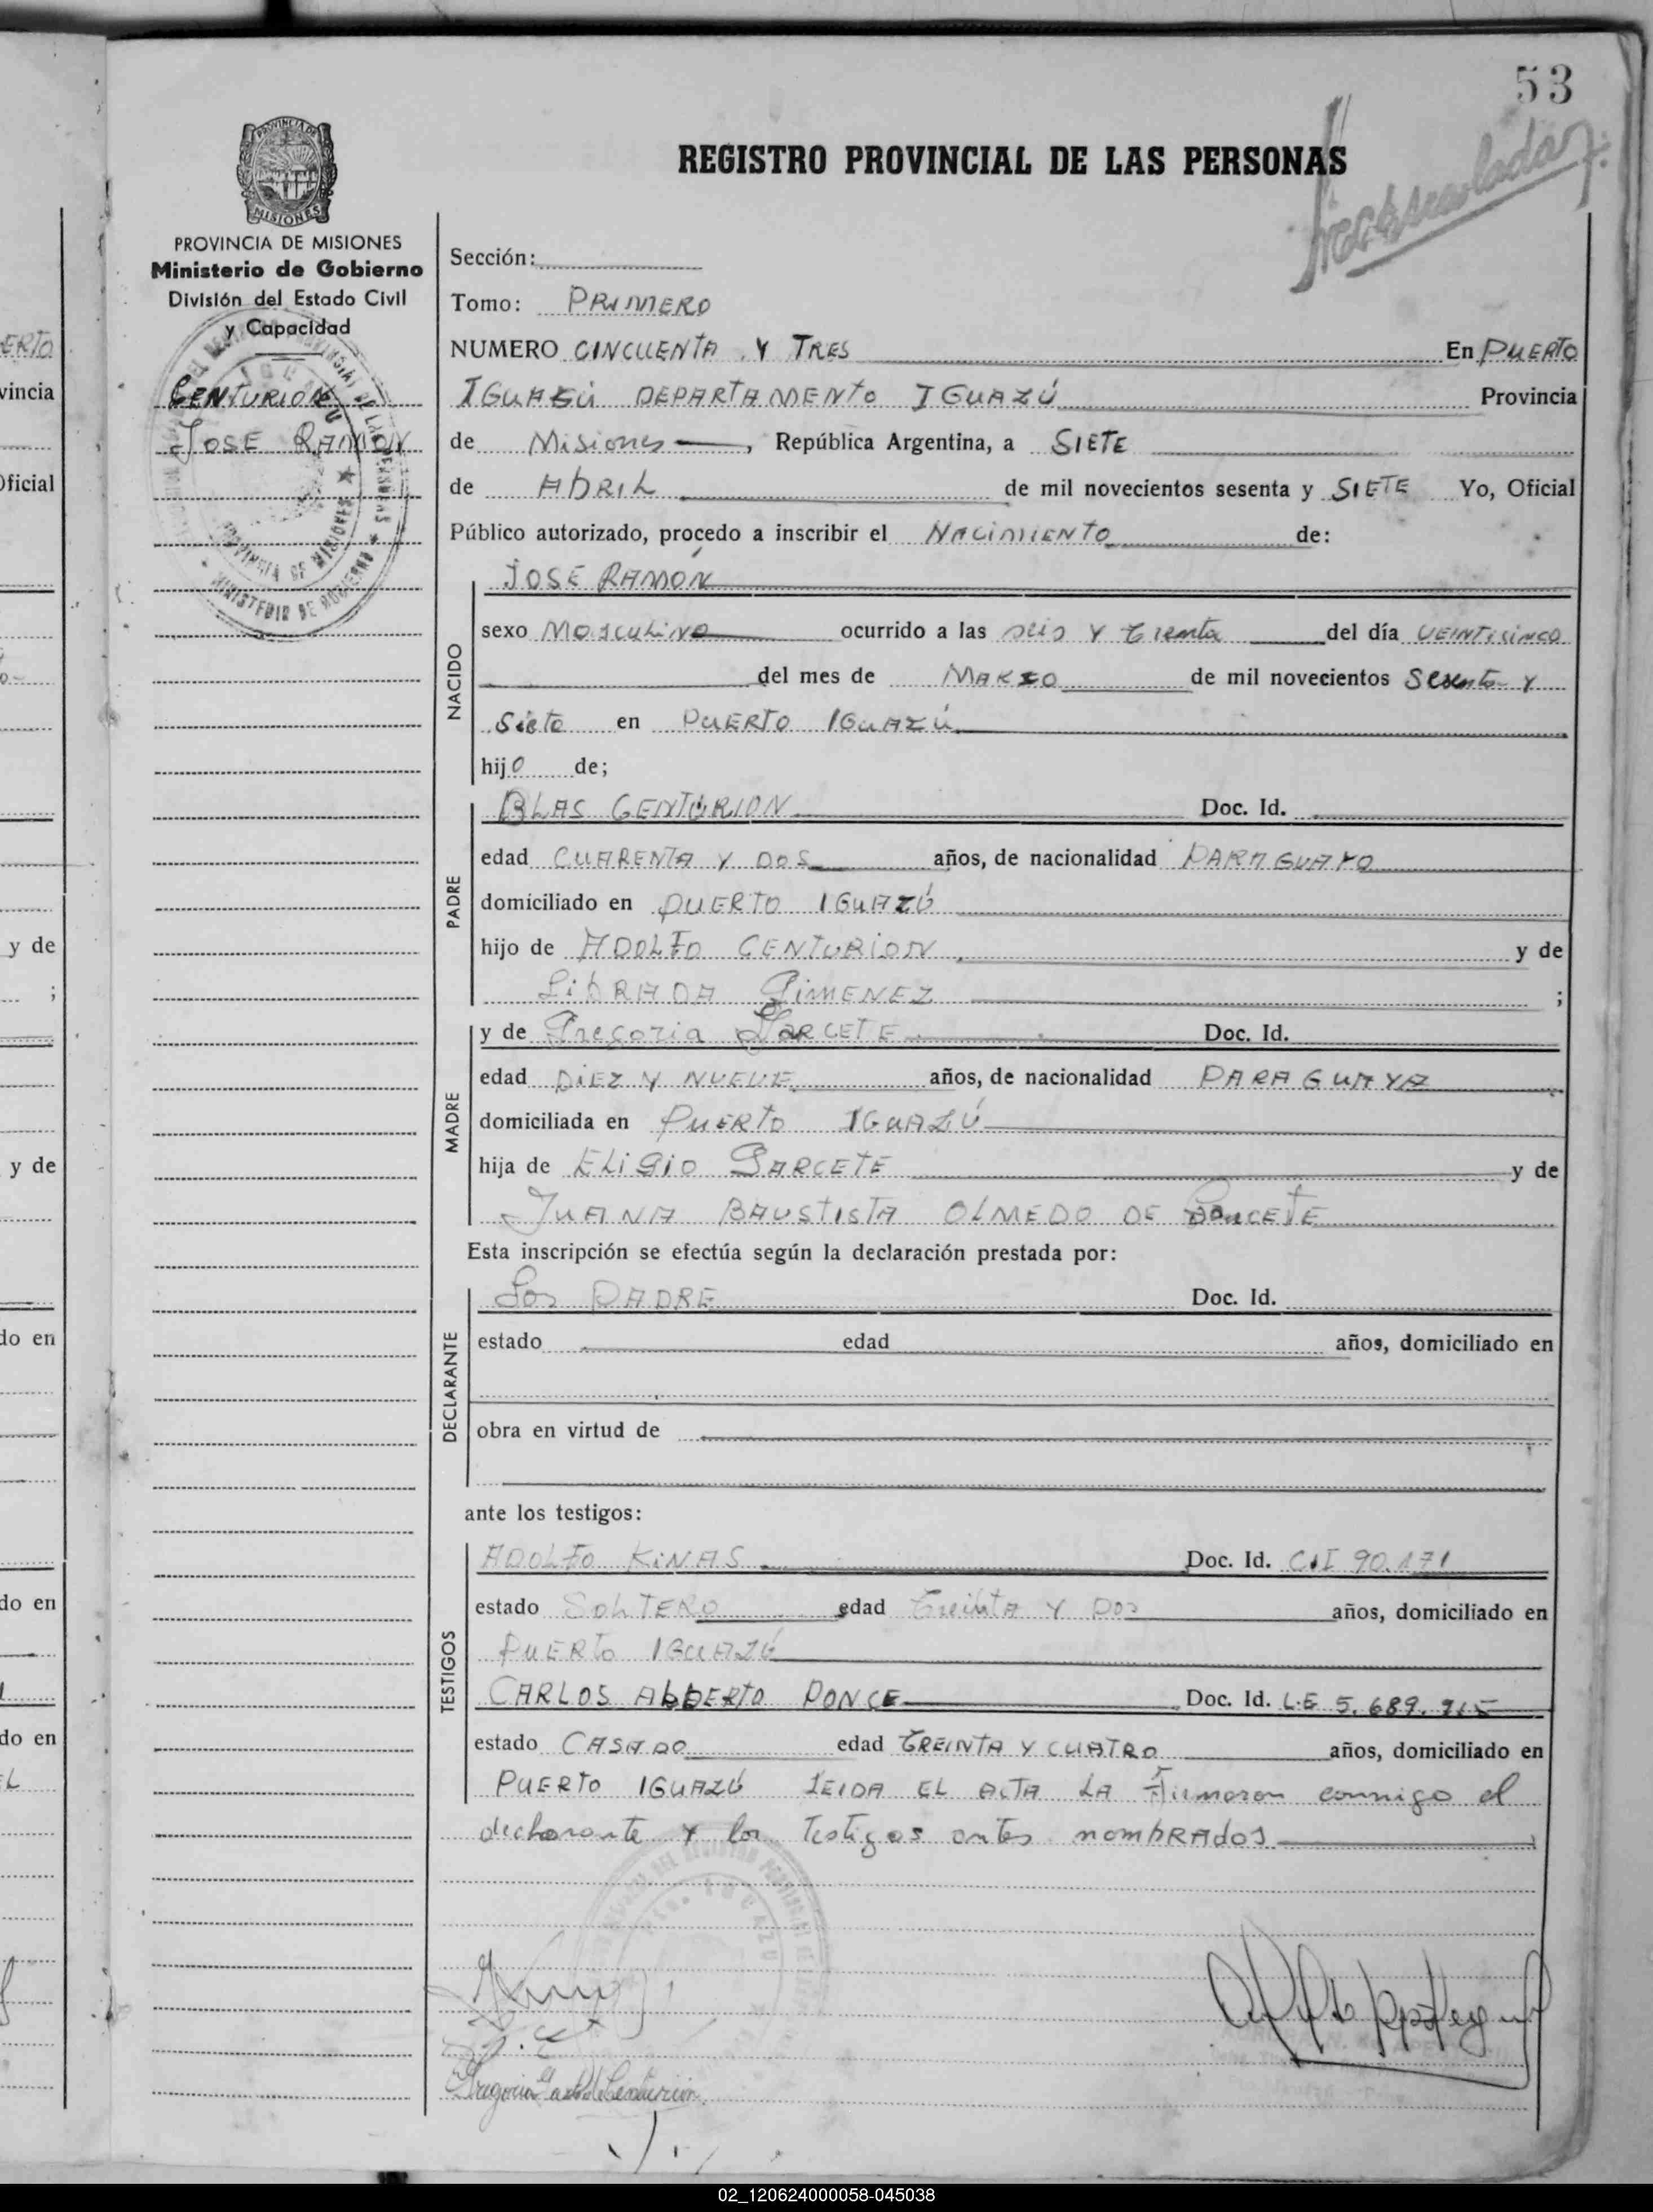 53
REGISTRO PROVINCIAL DE LAS PERSONAS
PROVINCIA DE MISIONES
PROVINCIA DE MISIONES
Ministerio de Gobierno
División del Estado Civil
y Capacidad
CENTURION
JOSE RAMON
Sección:
Tomo: PRIMERO
NUMERO CINCUENTA Y TRES En PUERTO
IGUAZÚ DEPARTAMENTO IGUAZÚ Provincia
de Misiones, República Argentina, a SIETE
de AbRIL de mil novecientos sesenta y SIETE Yo, Oficial
Público autorizado, procedo a inscribir el NACIMIENTO de:
NACIDO
JOSÉ RAMON
sexo MASCULINO ocurrido a las seis Y treinta del día VEINTISINCO
del mes de MARZO de mil novecientos Sesenta Y
Siete en PUERTO IGUAZÚ
hijO de;
PADRE
BLAS CENTURION Doc. Id.
edad CUARENTA Y DOS años, de nacionalidad PARAGUAYO
domiciliado en PUERTO IGUAZÚ
hijo de ADOLFO CENTURION y de
LibRADA GiMENEZ ;
MADRE
y de Gregoria GARCETE Doc. Id.
edad DiEZ Y NUEVE años, de nacionalidad PARAGUAYA
domiciliada en PUERTO IGUAZÚ
hija de ELiGiO GARCETE y de
JUANA BAUSTISTA OLMEDO DE GARCETE
Esta inscripción se efectúa según la declaración prestada por:
DECLARANTE
Los PADRE Doc. Id.
estado edad años, domiciliado en
obra en virtud de
ante los testigos:
TESTIGOS
ADOLFO KiNAS Doc. Id. C.I 90.171
estado SOLTERO edad treinta Y DOS años, domiciliado en
PUERTO IGUAZÚ
CARLOS ALBERTO PONCE Doc. Id. L.E 5.689.
estado CASADO edad TREINTA Y CUATRO años, domiciliado en
PUERTO IGUAZÚ LEIDA EL ACTA LA Firmaron conmigo el
declarante Y los Testigos antes nombRAdos
Gregoria de Centurión
02_120624000058-045038